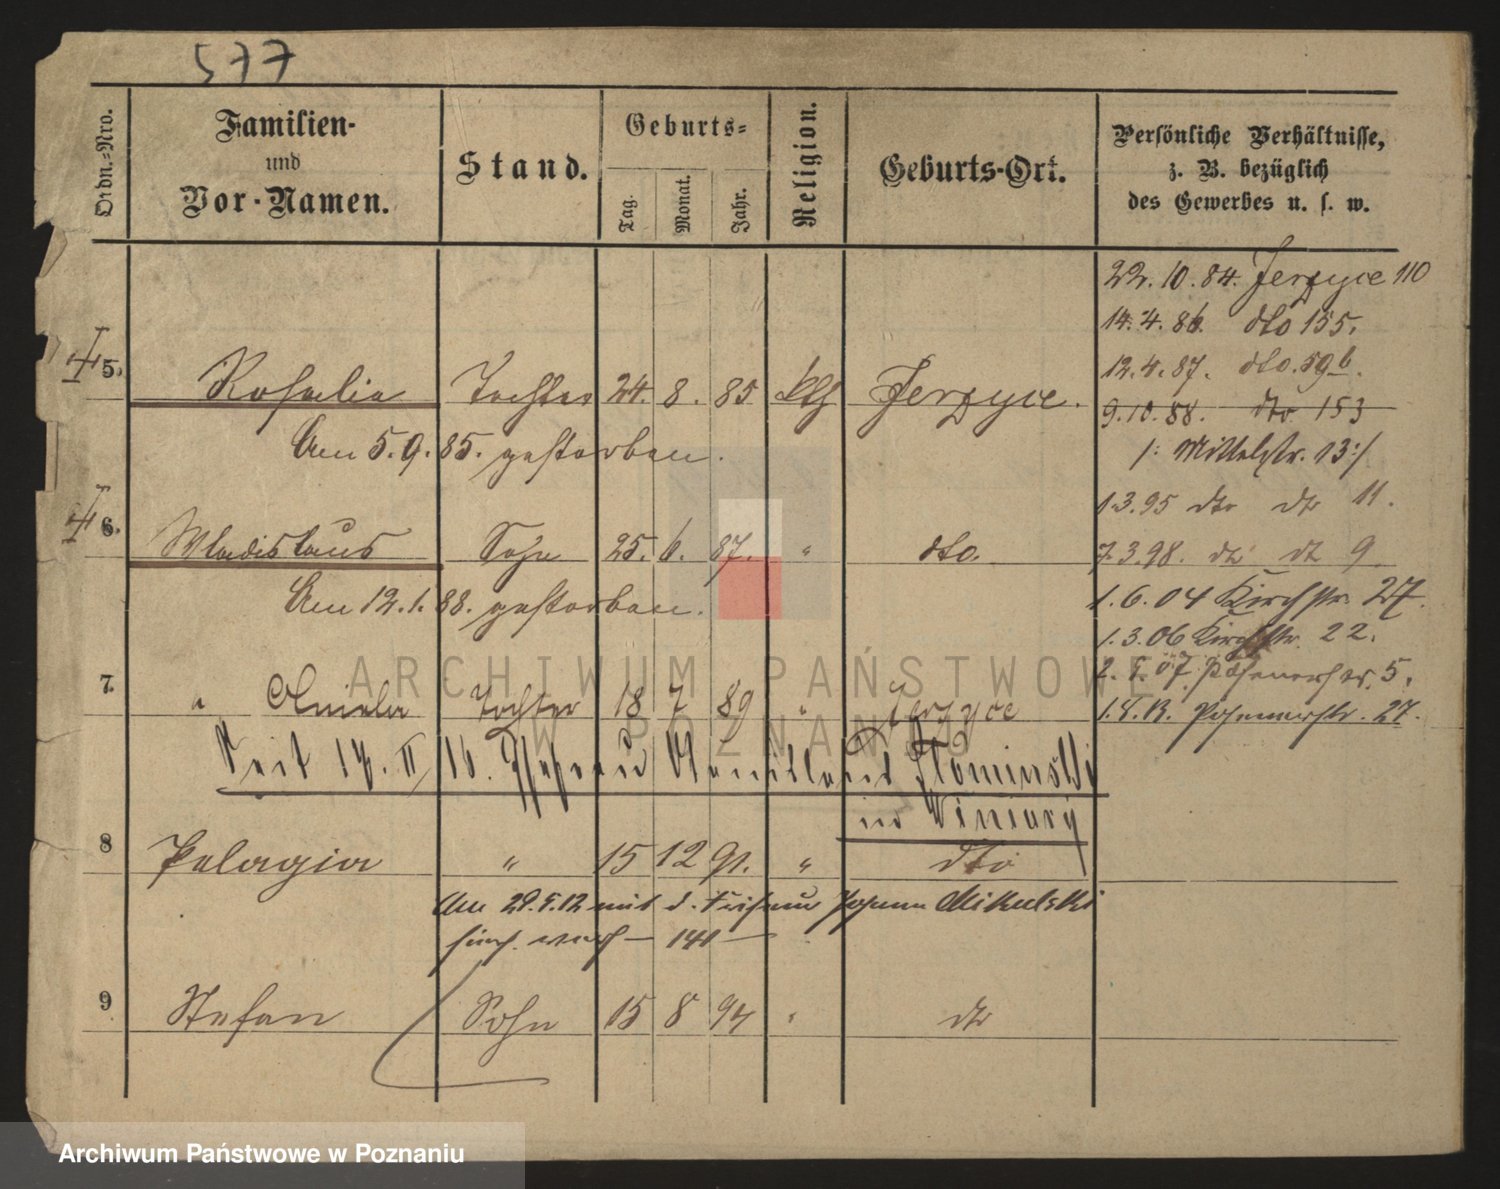 577
Ordn.-Nro.
Familien-
und
Vor-Namen.
Stand.
Geburts-
Tag.
Monat.
Jahr.
Religion.
Geburts-Ort.
Persönliche Verhältnisse,
z. B. bezüglich
des Gewerbes u. s. w.
22. 10. 84. Jerzyce 110
14. 4. 86. dto 155.
12. 4. 87. dto. 59b.
5. Rosalie Tochter 24. 8. 85 kth Jerzyce.
9. 10. 88. dto 153
Am 5. 9. 85. gestorben.
/: Mittelstr. 13 :/
1.3.95 dto dto 11.
6. Wladislaus Sohn 25. 6. 87. " dto.
7.3.98. dto dto 9
Am 12. 1. 88. gestorben.
1. 6. 04 Kirchstr. 27.
1. 3. 06 Kirchstr. 22.
07 Posenerstr. 5.
7. " Aniela Tochter 18 7 89 " Jerzyce
Posenerstr. 27.
Seit 14. II 16. Ehefrau Slominski
in Winiary
8 Pelagia " 15 12 91. " dto
Am 29. 5. 12 mit d. Friseur Johann Mikulski
141
9 Stefan Sohn 15 8 94 " dto
ARCHIWUM PAŃSTWOWE
W POZNANIU
Archiwum Państwowe w Poznaniu